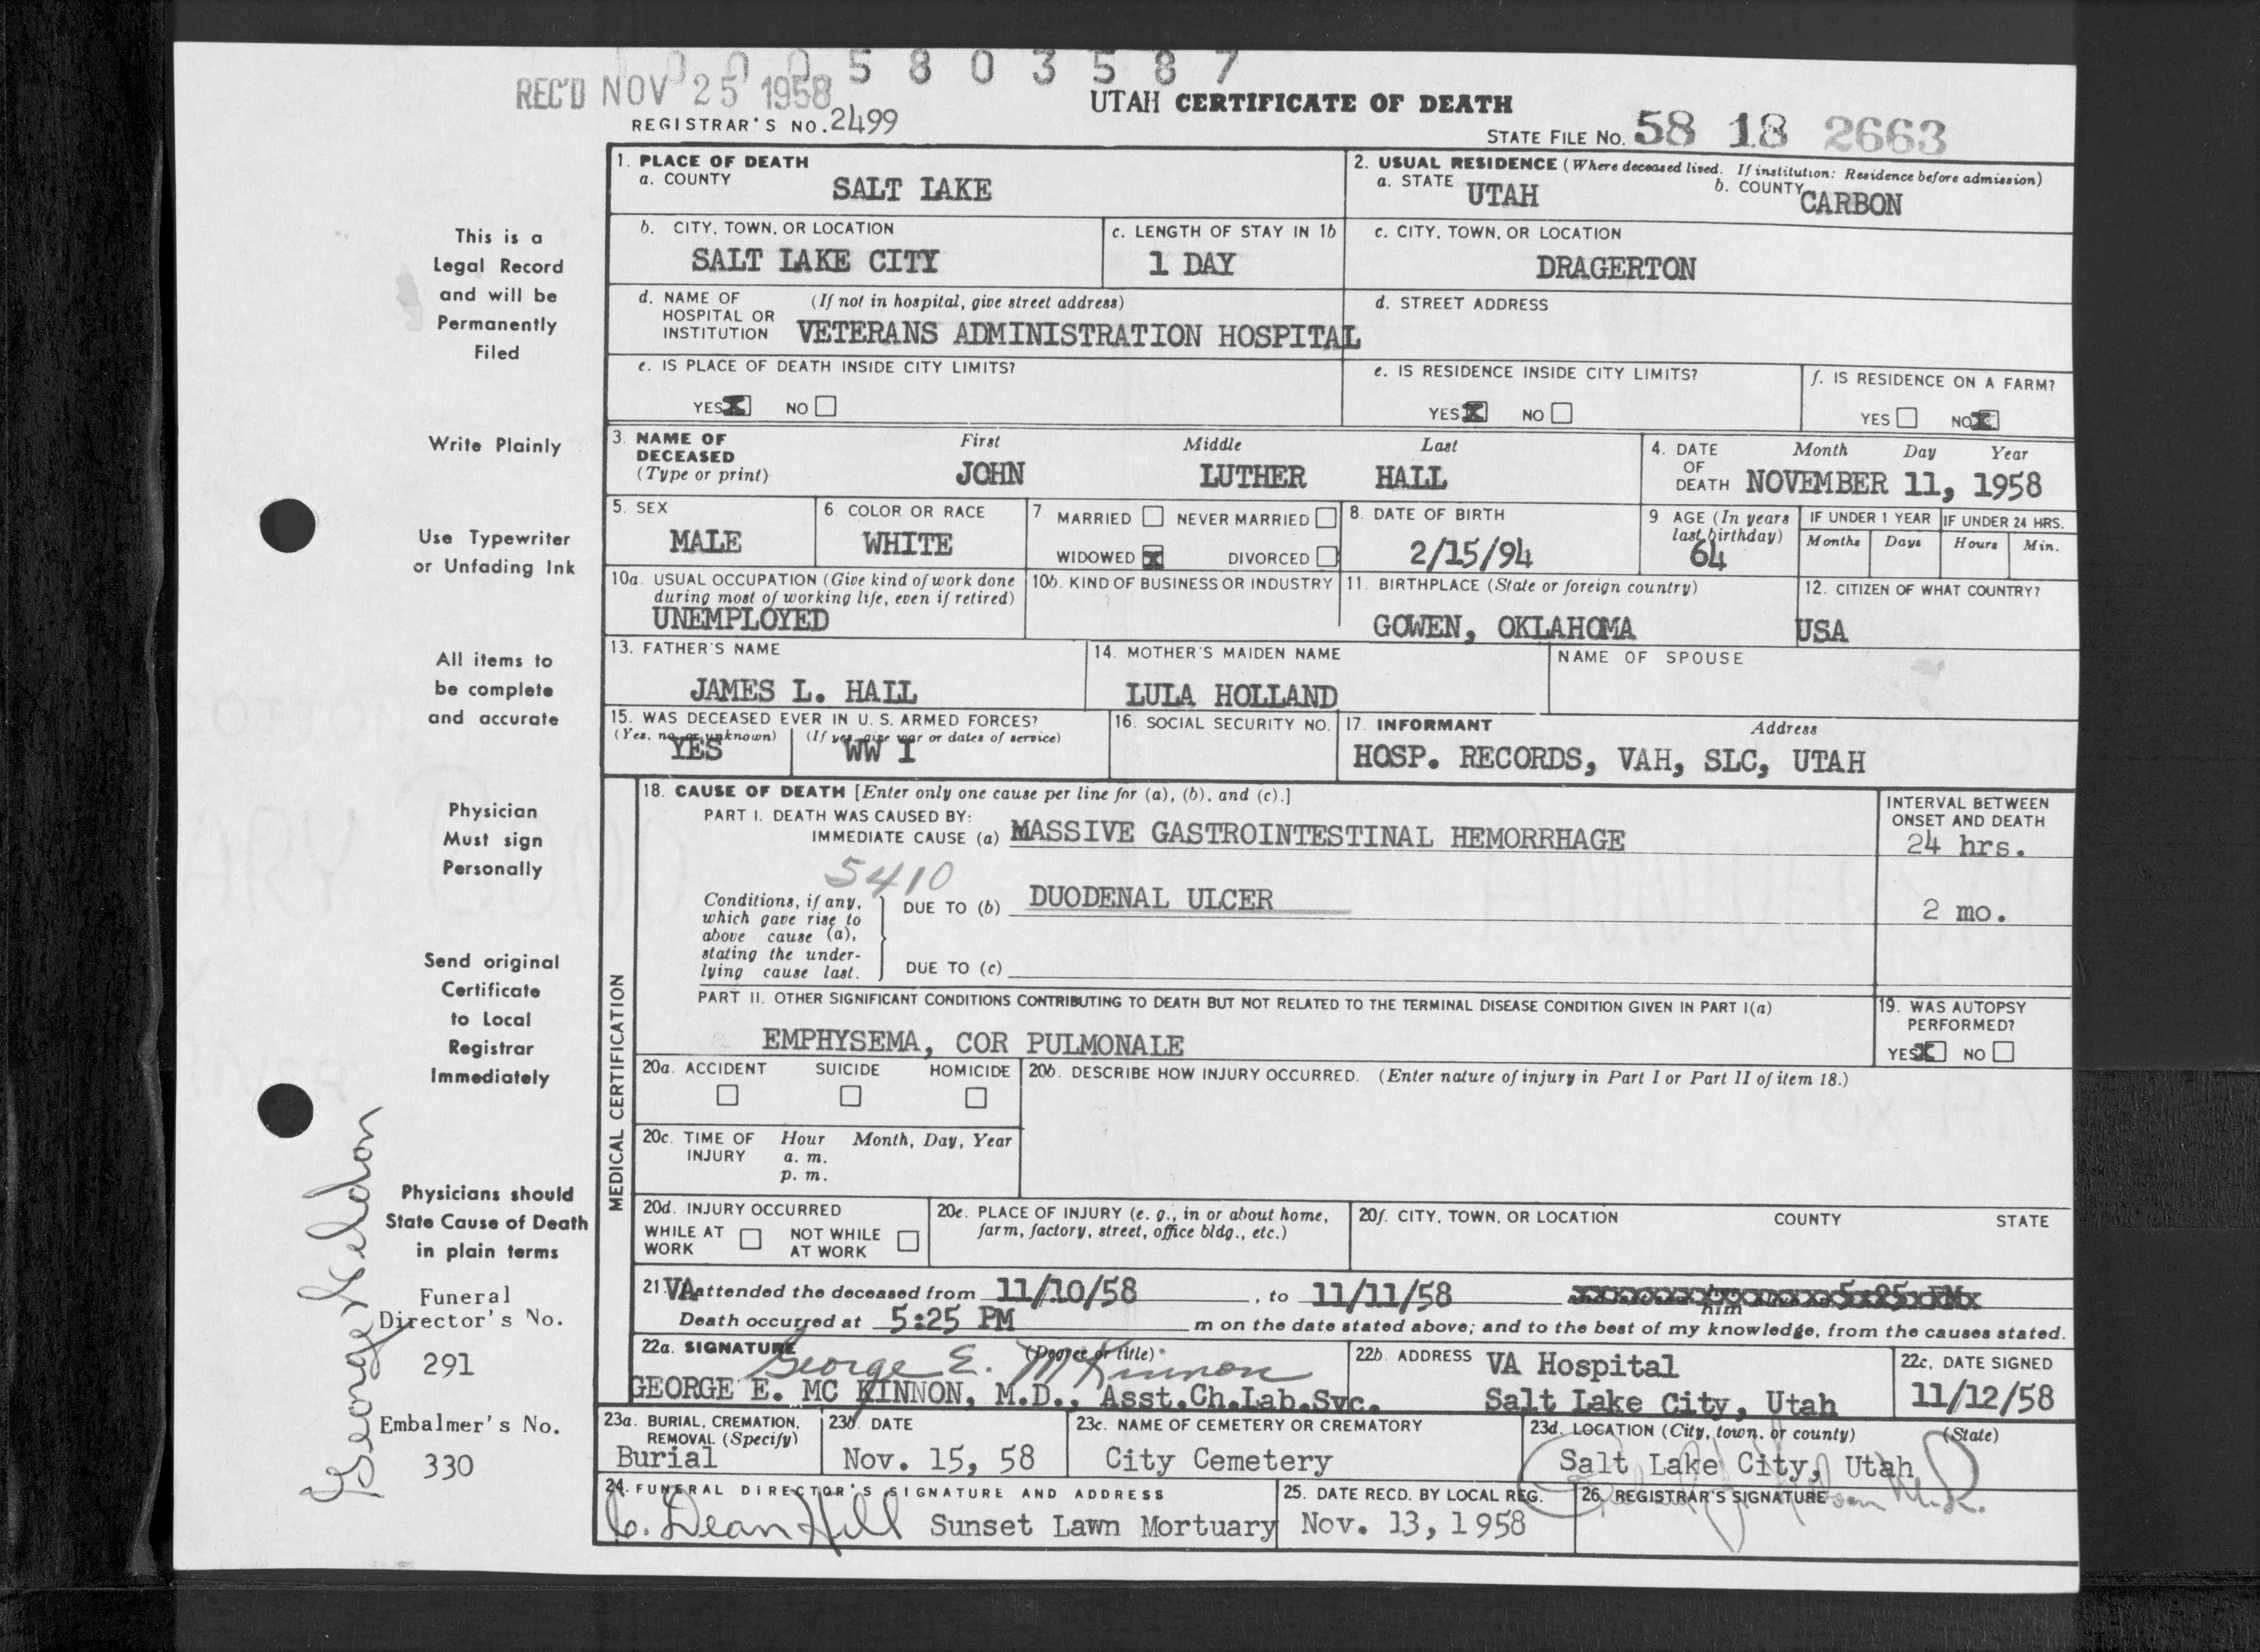 0005803587
REC'D NOV 25 1958
UTAH CERTIFICATE OF DEATH
REGISTRAR'S NO. 2499
STATE FILE NO. 58 18 2663
1. PLACE OF DEATH
a. COUNTY SALT LAKE
2. USUAL RESIDENCE (Where deceased lived. If institution: Residence before admission)
a. STATE UTAH b. COUNTY CARBON
b. CITY, TOWN, OR LOCATION SALT LAKE CITY
c. LENGTH OF STAY IN 1b 1 DAY
c. CITY, TOWN, OR LOCATION DRAGERTON
d. NAME OF HOSPITAL OR INSTITUTION (If not in hospital, give street address) VETERANS ADMINISTRATION HOSPITAL
d. STREET ADDRESS
e. IS PLACE OF DEATH INSIDE CITY LIMITS?
YES X NO
e. IS RESIDENCE INSIDE CITY LIMITS?
YES X NO
f. IS RESIDENCE ON A FARM?
YES NO X
3. NAME OF DECEASED (Type or print)
First Middle Last
JOHN LUTHER HALL
4. DATE OF DEATH Month Day Year
NOVEMBER 11, 1958
5. SEX
MALE
6. COLOR OR RACE
WHITE
7. MARRIED NEVER MARRIED
WIDOWED X DIVORCED
8. DATE OF BIRTH
2/15/94
9 AGE (In years last birthday)
64
IF UNDER 1 YEAR
Months Days
IF UNDER 24 HRS.
Hours Min.
10a. USUAL OCCUPATION (Give kind of work done during most of working life, even if retired)
UNEMPLOYED
10b. KIND OF BUSINESS OR INDUSTRY
11. BIRTHPLACE (State or foreign country)
GOWEN, OKLAHOMA
12. CITIZEN OF WHAT COUNTRY?
USA
13. FATHER'S NAME
JAMES L. HALL
14. MOTHER'S MAIDEN NAME
LULA HOLLAND
NAME OF SPOUSE
15. WAS DECEASED EVER IN U. S. ARMED FORCES?
(Yes, no, or unknown) (If yes, give war or dates of service)
YES WW I
16. SOCIAL SECURITY NO.
17. INFORMANT Address
HOSP. RECORDS, VAH, SLC, UTAH
MEDICAL CERTIFICATION
18. CAUSE OF DEATH [Enter only one cause per line for (a), (b), and (c).]
INTERVAL BETWEEN ONSET AND DEATH
PART I. DEATH WAS CAUSED BY:
IMMEDIATE CAUSE (a) MASSIVE GASTROINTESTINAL HEMORRHAGE 24 hrs.
5410
Conditions, if any, which gave rise to above cause (a), stating the underlying cause last.
DUE TO (b) DUODENAL ULCER 2 mo.
DUE TO (c)
PART II. OTHER SIGNIFICANT CONDITIONS CONTRIBUTING TO DEATH BUT NOT RELATED TO THE TERMINAL DISEASE CONDITION GIVEN IN PART I(a)
EMPHYSEMA, COR PULMONALE
19. WAS AUTOPSY PERFORMED?
YES X NO
20a. ACCIDENT SUICIDE HOMICIDE
20b. DESCRIBE HOW INJURY OCCURRED. (Enter nature of injury in Part I or Part II of item 18.)
20c. TIME OF INJURY Hour Month, Day, Year
a. m.
p. m.
20d. INJURY OCCURRED
WHILE AT WORK NOT WHILE AT WORK
20e. PLACE OF INJURY (e. g., in or about home, farm, factory, street, office bldg., etc.)
20f. CITY, TOWN, OR LOCATION COUNTY STATE
21. VA attended the deceased from 11/10/58, to 11/11/58
Death occurred at 5:25 PM m on the date stated above; and to the best of my knowledge, from the causes stated.
22a. SIGNATURE (Degree or title)
George E. McKinnon
GEORGE E. MC KINNON, M.D., Asst.Ch.Lab.Svc.
22b. ADDRESS VA Hospital
Salt Lake City, Utah
22c. DATE SIGNED
11/12/58
23a. BURIAL, CREMATION, REMOVAL (Specify)
Burial
23b. DATE
Nov. 15, 58
23c. NAME OF CEMETERY OR CREMATORY
City Cemetery
23d. LOCATION (City, town, or county) (State)
Salt Lake City, Utah
24. FUNERAL DIRECTOR'S SIGNATURE AND ADDRESS
C. Dean Hill Sunset Lawn Mortuary
25. DATE RECD. BY LOCAL REG.
Nov. 13, 1958
26. REGISTRAR'S SIGNATURE
This is a
Legal Record
and will be
Permanently
Filed
Write Plainly
Use Typewriter
or Unfading Ink
All items to
be complete
and accurate
Physician
Must sign
Personally
Send original
Certificate
to Local
Registrar
Immediately
Physicians should
State Cause of Death
in plain terms
Funeral
Director's No.
291
Embalmer's No.
330
George